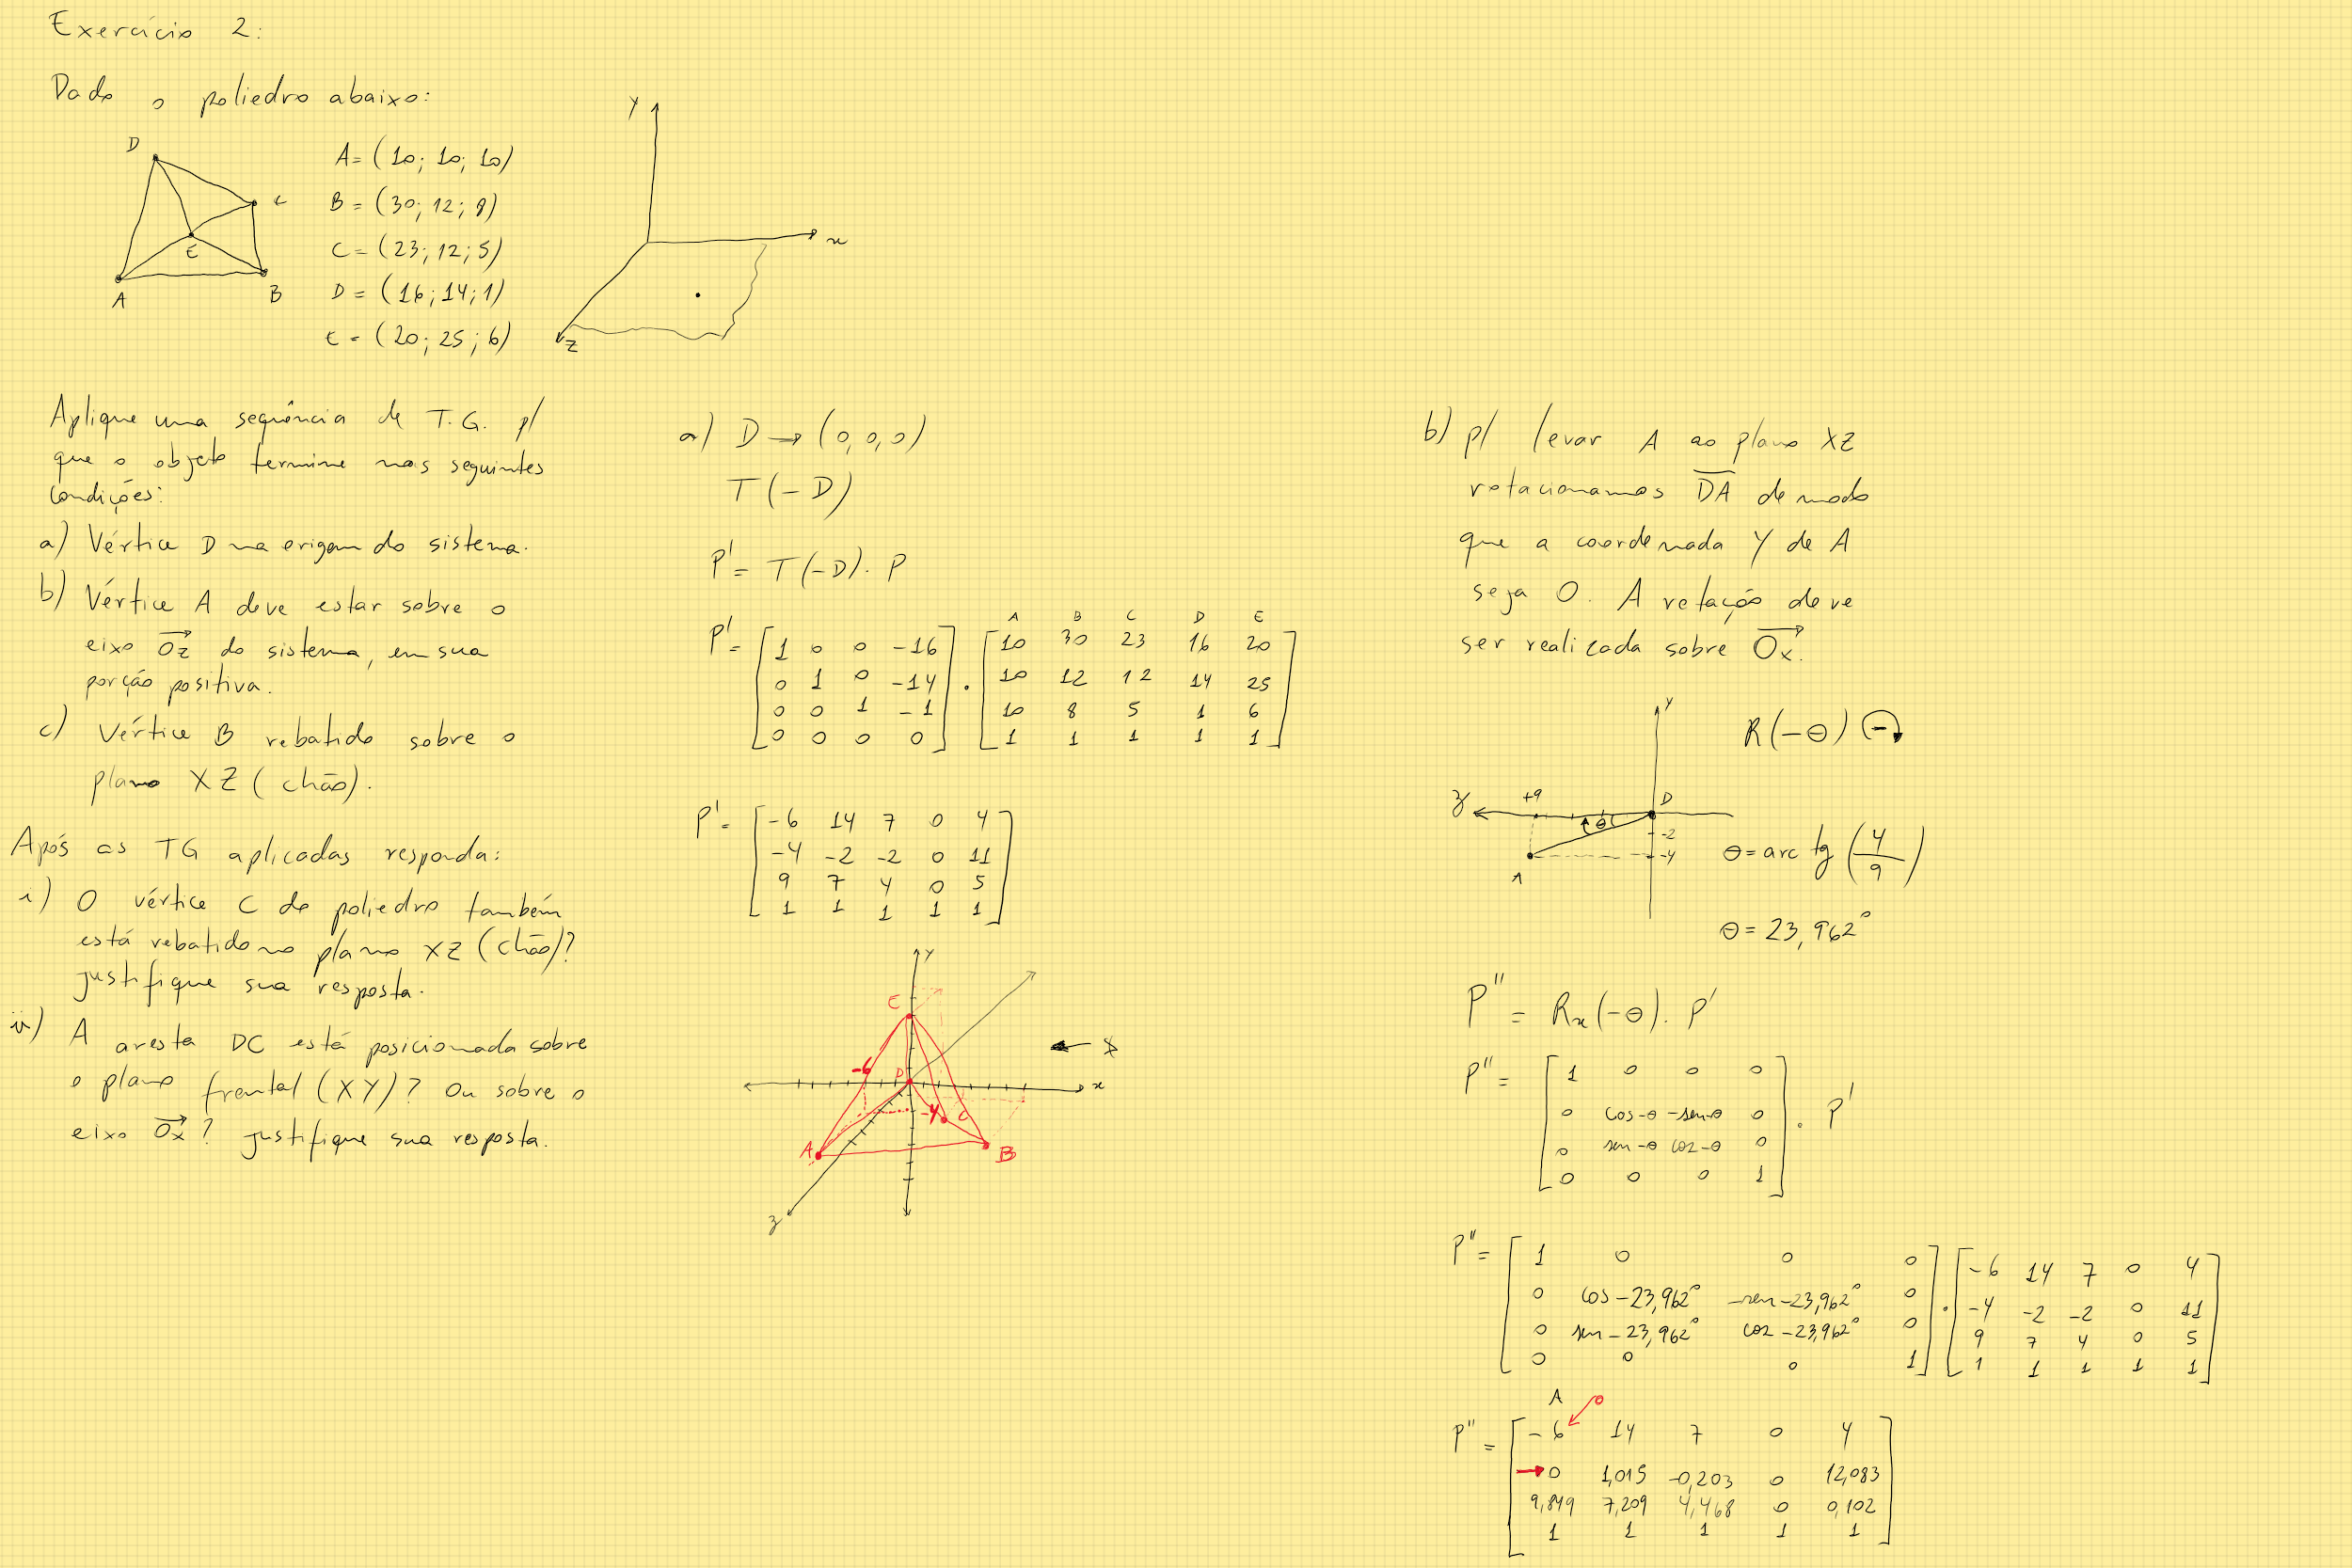 Exercício 2:
Dado o poliedro abaixo:
D
C
E
A
B
A = (10; 10; 10)
B = (30; 12; 8)
C = (23; 12; 5)
D = (16; 14; 1)
E = (20; 25; 6)
Y
x
z
Aplique uma sequência de T.G. p/
que o objeto termine nas seguintes
condições:
a) Vértice D na origem do sistema.
b) Vértice A deve estar sobre o
eixo Oz do sistema, em sua
porção positiva.
c) Vértice B rebatido sobre o
plano XZ (chão).
Após as TG aplicadas responda:
i) O vértice C do poliedro também
está rebatido no plano XZ (chão)?
justifique sua resposta.
ii) A aresta DC está posicionada sobre
o plano frontal (XY)? Ou sobre o
eixo Ox? justifique sua resposta.
a) D → (0,0,0)
T(-D)
P' = T(-D). P
A B C D E
P' = [ 1 0 0 -16 ] . [ 10 30 23 16 20 ]
0 1 0 -14 10 12 12 14 25
0 0 1 -1 10 8 5 1 6
0 0 0 0 1 1 1 1 1
P' = [ -6 14 7 0 4 ]
-4 -2 -2 0 11
9 7 4 0 5
1 1 1 1 1
Y
E
-6
D
x
-4
C
A
B
z
b) p/ levar A ao plano XZ
rotacionamos DA de modo
que a coordenada Y de A
seja 0. A rotação deve
ser realizada sobre Ox.
Y
R(-θ) -
z +9 D
θ
-2
-4
A
θ = arc tg (4/9)
θ = 23,962°
P'' = Rx(-θ). P'
P'' = [ 1 0 0 0 ] . P'
0 cos-θ -sen-θ 0
0 sen-θ cos-θ 0
0 0 0 1
P'' = [ 1 0 0 0 ] . [ -6 14 7 0 4 ]
0 cos-23,962° -sen-23,962° 0 -4 -2 -2 0 11
0 sen-23,962° cos-23,962° 0 9 7 4 0 5
0 0 0 1 1 1 1 1 1
A 0
P'' = [ -6 14 7 0 4 ]
0 1,015 -0,203 0 12,083
9,849 7,209 4,468 0 0,102
1 1 1 1 1